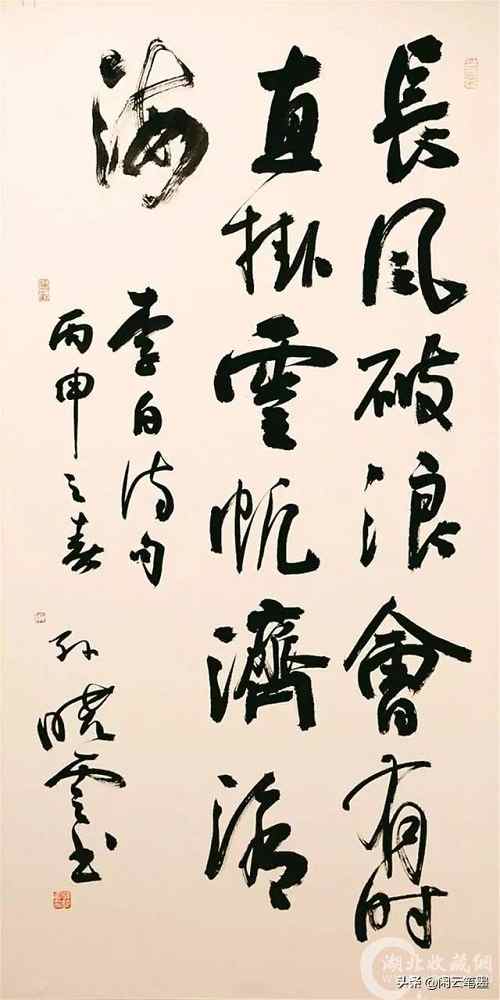 長风破浪會有时
直掛雲帆濟滄
海
李白诗句
丙申之春
孙晓雲书
湖北收藏网
头条@闲云笔墨